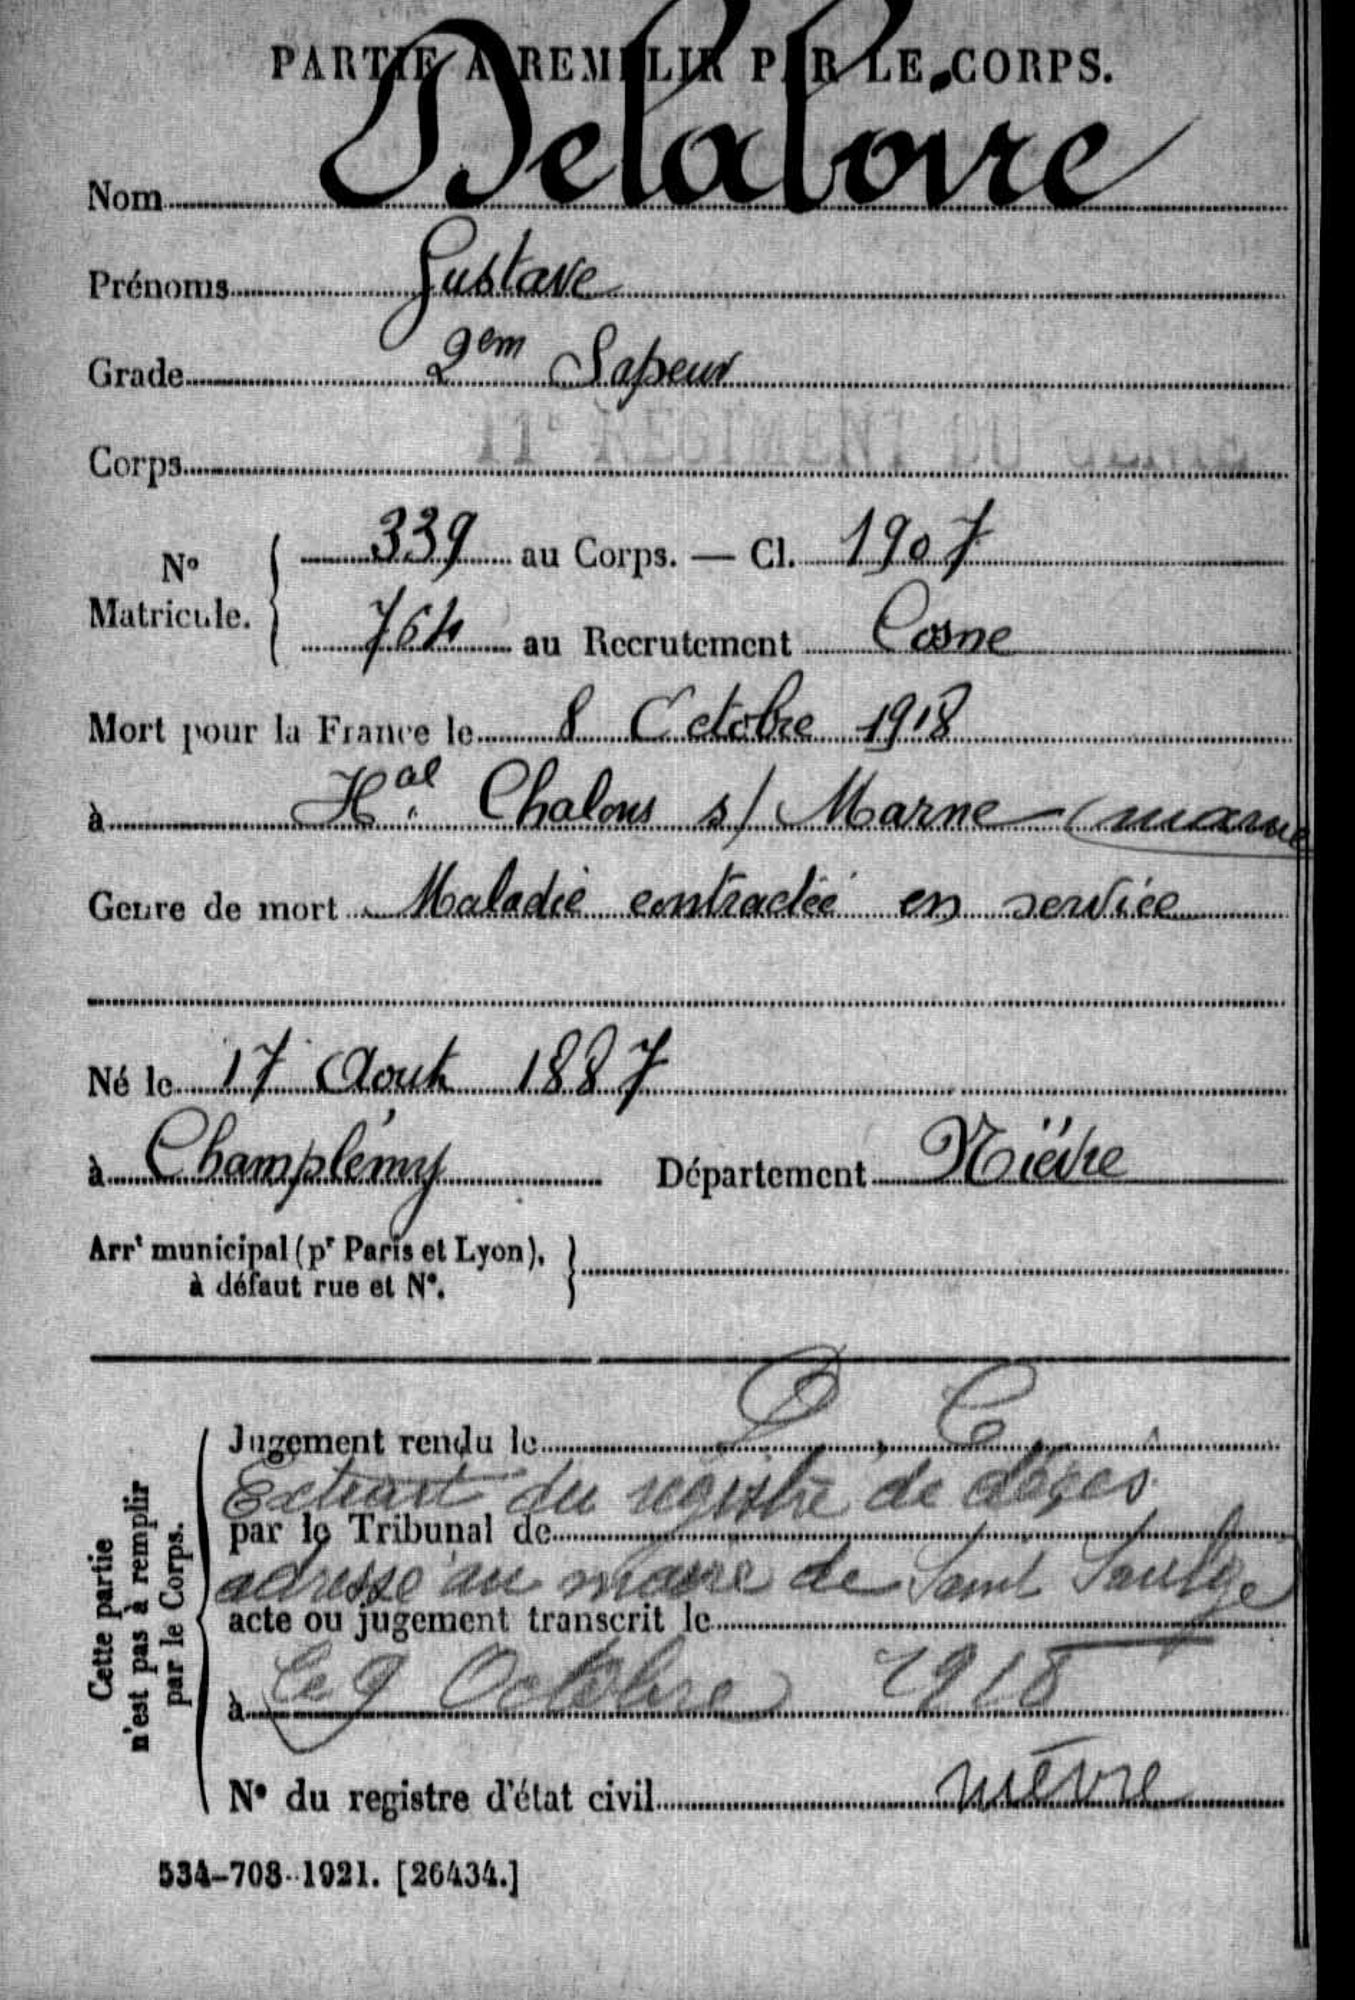 PARTIE A REMPLIR PAR LE CORPS.
Nom Delaloire
Prénoms Gustave
Grade 2em Sapeur
Corps 11e RÉGIMENT DU GÉNIE
No Matricule. { 339 au Corps. — Cl. 1907
764 au Recrutement Cosne
Mort pour la France le 8 Octobre 1918
à Hal Chalons s/ Marne (marne
Genre de mort Maladie contractée en service
Né le 17 Aout 1887
à Champlémy Département Nièvre
Arrt municipal (pr Paris et Lyon), }
à défaut rue et No.
D. C.
Jugement rendu le
Extrait du registre de décès
par le Tribunal de
adressé au maire de Saint Saulge
acte ou jugement transcrit le
le 9 Octobre 1918
à
No du registre d'état civil nièvre
Cette partie
n'est pas à remplir
par le Corps.
534-708-1921. [26434.]